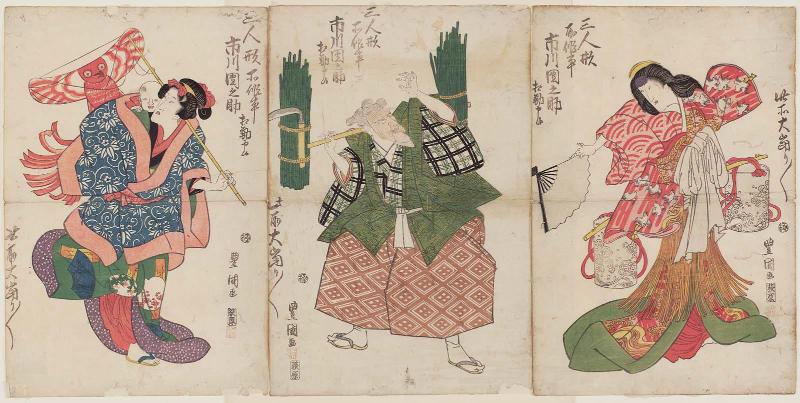 三人形
所作事
市川團之助
相勤申候
此所大當り〱
豊國画
三人形
所作事
市川團之助
相勤申候
此所大當り〱
豊國画
三人形
所作事
市川團之助
相勤申候
此所大當り〱
豊國画